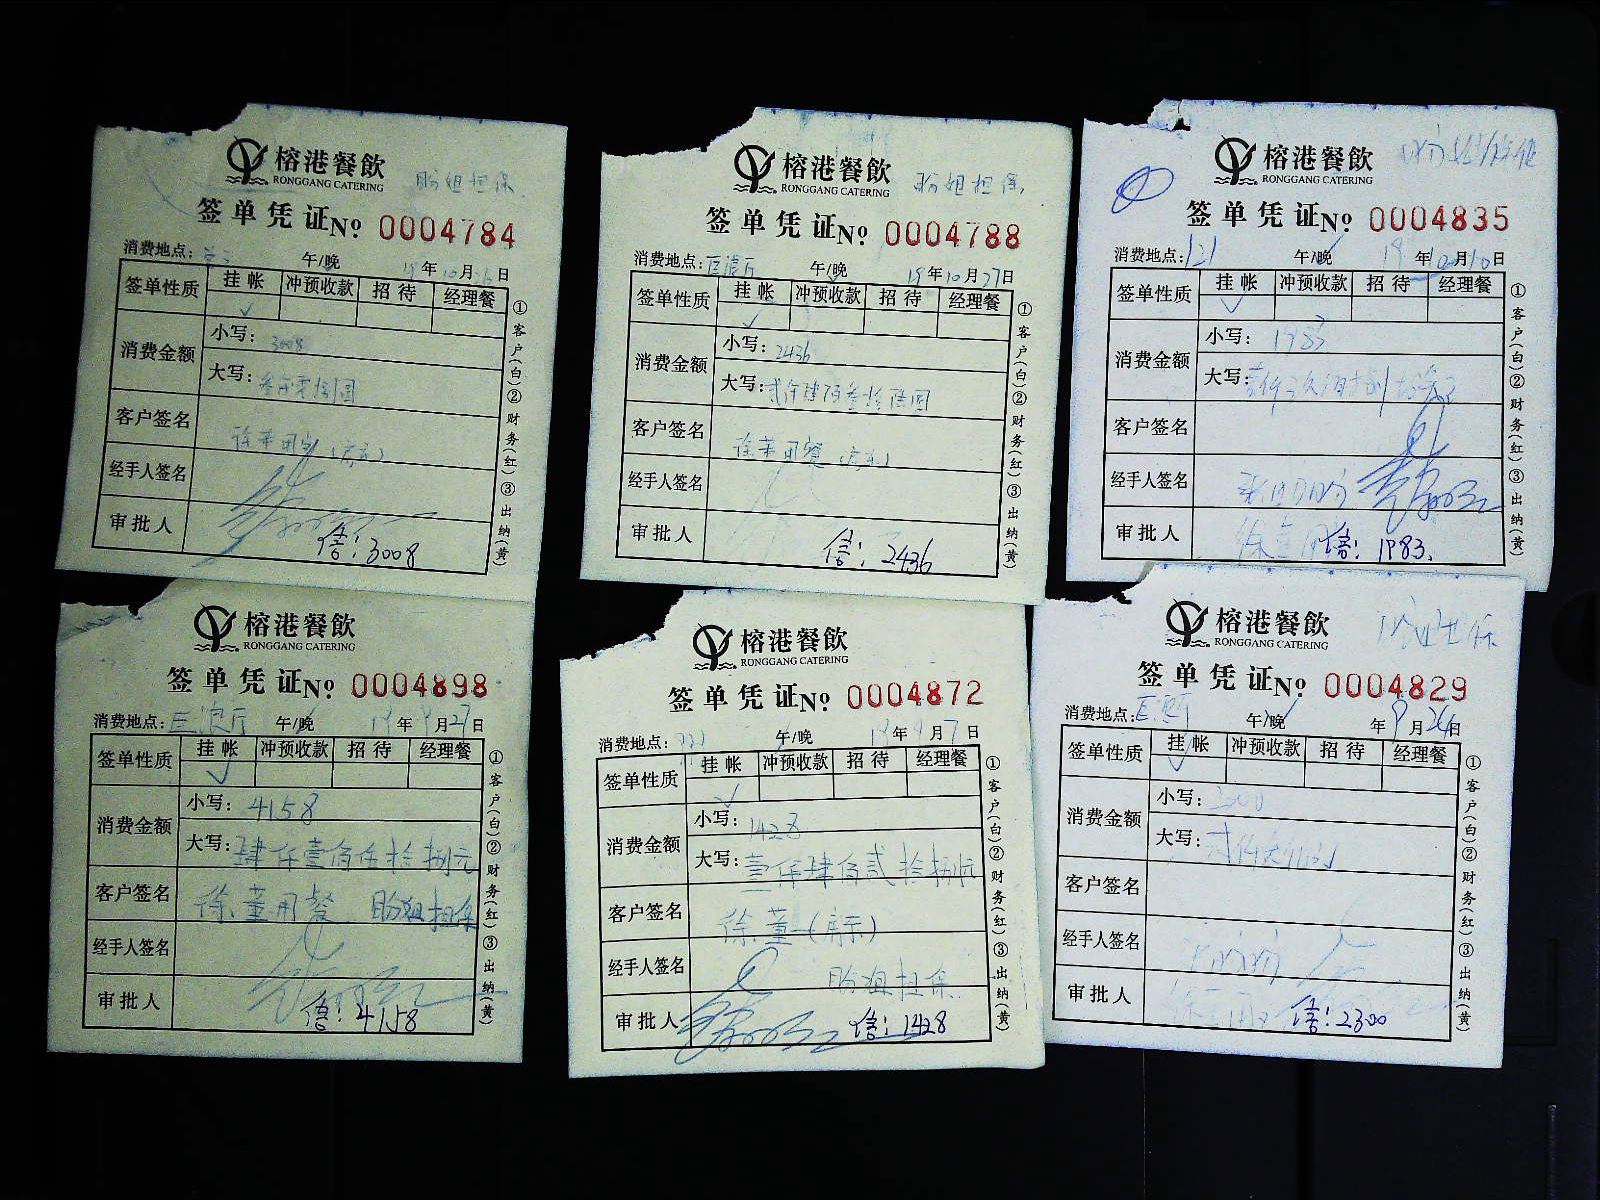 榕港餐飲
RONGGANG CATERING
盼姐担保
签单凭证No 0004784
消费地点: 午/晚 19年10月 日
签单性质 挂帐 冲预收款 招待 经理餐
√
消费金额 小写: 3008
大写: 叁仟零捌圆
客户签名 徐董用餐
经手人签名
审批人 信: 3008
①客户(白)②财务(红)③出纳(黄)
榕港餐飲
RONGGANG CATERING
盼姐担保
签单凭证No 0004788
消费地点: 午/晚 19年10月27日
签单性质 挂帐 冲预收款 招待 经理餐
√
消费金额 小写: 2436
大写: 贰仟肆佰叁拾陆圆
客户签名 徐董用餐
经手人签名
审批人 信: 2436
①客户(白)②财务(红)③出纳(黄)
榕港餐飲
RONGGANG CATERING
签单凭证No 0004835
消费地点: 121 午/晚 19年10月10日
签单性质 挂帐 冲预收款 招待 经理餐
√
消费金额 小写: 1983
大写:
客户签名
经手人签名
审批人 信: 1983.
①客户(白)②财务(红)③出纳(黄)
榕港餐飲
RONGGANG CATERING
签单凭证No 0004898
消费地点: 午/晚 19年9月27日
签单性质 挂帐 冲预收款 招待 经理餐
√
消费金额 小写: 4158
大写: 肆仟壹佰伍拾捌元
客户签名 徐董用餐 盼姐担保
经手人签名
审批人 信: 4158
①客户(白)②财务(红)③出纳(黄)
榕港餐飲
RONGGANG CATERING
签单凭证No 0004872
消费地点: 午/晚 19年9月7日
签单性质 挂帐 冲预收款 招待 经理餐
√
消费金额 小写: 1428
大写: 壹仟肆佰贰拾捌元
客户签名 徐董
经手人签名 盼姐担保
审批人 信: 1428
①客户(白)②财务(红)③出纳(黄)
榕港餐飲
RONGGANG CATERING
签单凭证No 0004829
消费地点: 午/晚 年9月26日
签单性质 挂帐 冲预收款 招待 经理餐
√
消费金额 小写:
大写:
客户签名
经手人签名
审批人 信: 2300
①客户(白)②财务(红)③出纳(黄)